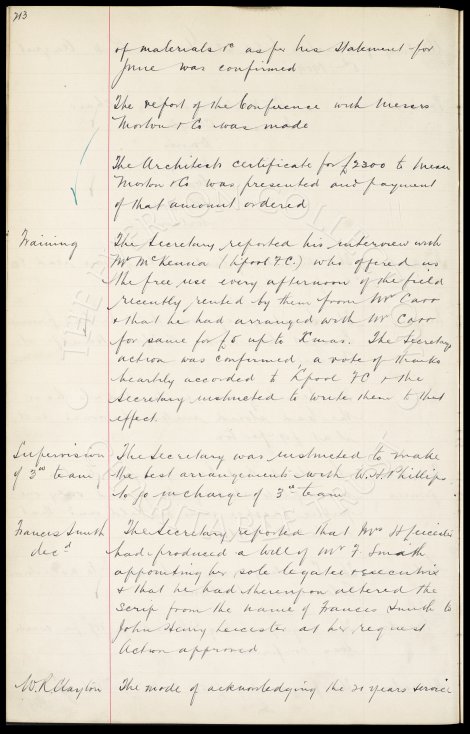 213
of materials &c as per his Statement for
June was confirmed
The report of the Conference with Messrs
Morton & Co was made
The Architects certificate for £2300 to Messrs
Morton & Co was presented and payment
of that amount ordered
Training
The Secretary reported his interview with
Mr McKenna (L'pool F.C.) who offered us
the free use every afternoon of the field
recently rented by them from Mr Carr
& that he had arranged with Mr Carr
for same for £5 up to Xmas. The Secretary
action was confirmed, a vote of thanks
heartily accorded to L'pool FC & the
Secretary instructed to write them to that
effect.
Supervision
of 3rd team
The Secretary was instructed to make
the best arrangement with W.H. Phillips
to go in charge of 3rd team
Francis Smith
decd
The Secretary reported that Mrs H Leicester
had produced a will of Mr F. Smith
appointing her sole legatee & executrix
& that he had thereupon altered the
Scrip from the name of Francis Smith to
John Henry Leicester at her request
Action approved
W.R. Clayton
The mode of acknowledging the 21 years service